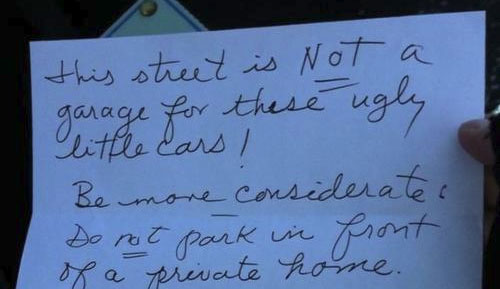 this street is NOT a
garage for these ugly
little cars!
Be more considerate:
Do not park in front
of a private home.